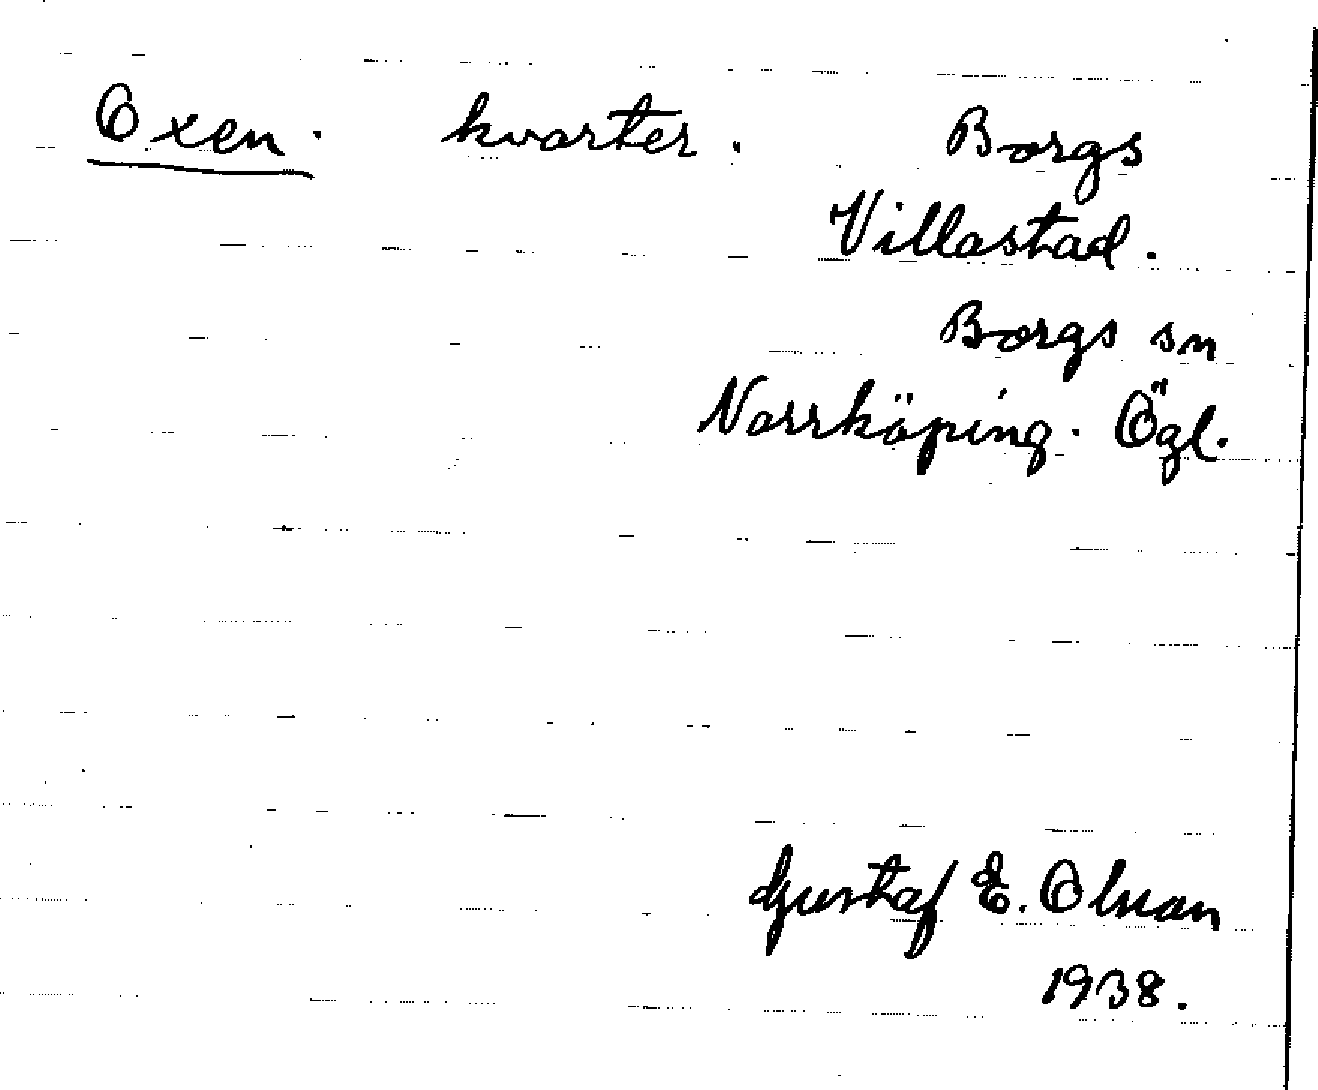 Oxen. kvarter. Borgs
Villastad.
Borgs sn
Norrköping. Ögl.
Gustaf E. Olsson
1938.